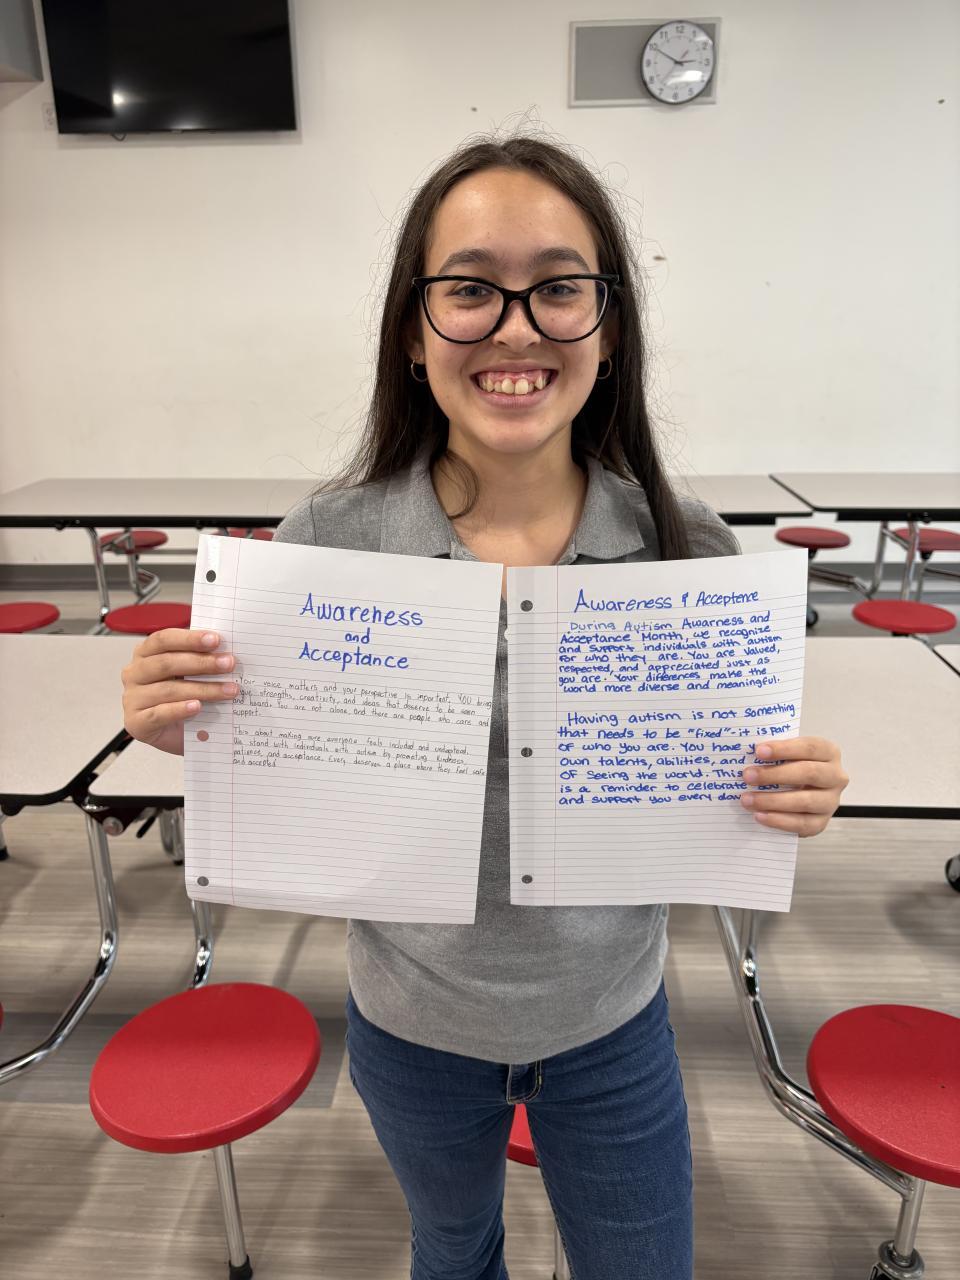 Awareness
and
Acceptance
Your voice matters and your perspective is important. YOU bring
strengths, creativity, and ideas that deserve to be seen
and heard. You are not alone, and there are people who care and
support.
This about making sure everyone feels included and understood.
We stand with individuals with autism by promoting kindness,
patience, and acceptance. Every deserves a place where they feel safe
and accepted
Awareness & Acceptance
During Autism Awarness and
Acceptance Month, we recognize
and support individuals with autism
for who they are. You are valued,
respected, and appreciated just as
you are. Your differences make the
world more diverse and meaningful.
Having autism is not something
that needs to be "fixed"- it is part
of who you are. You have
own talents, abilities, and
of seeing the world. This
is a reminder to celebrate you
and support you every day
12
1
2
3
4
5
6
7
8
9
10
11